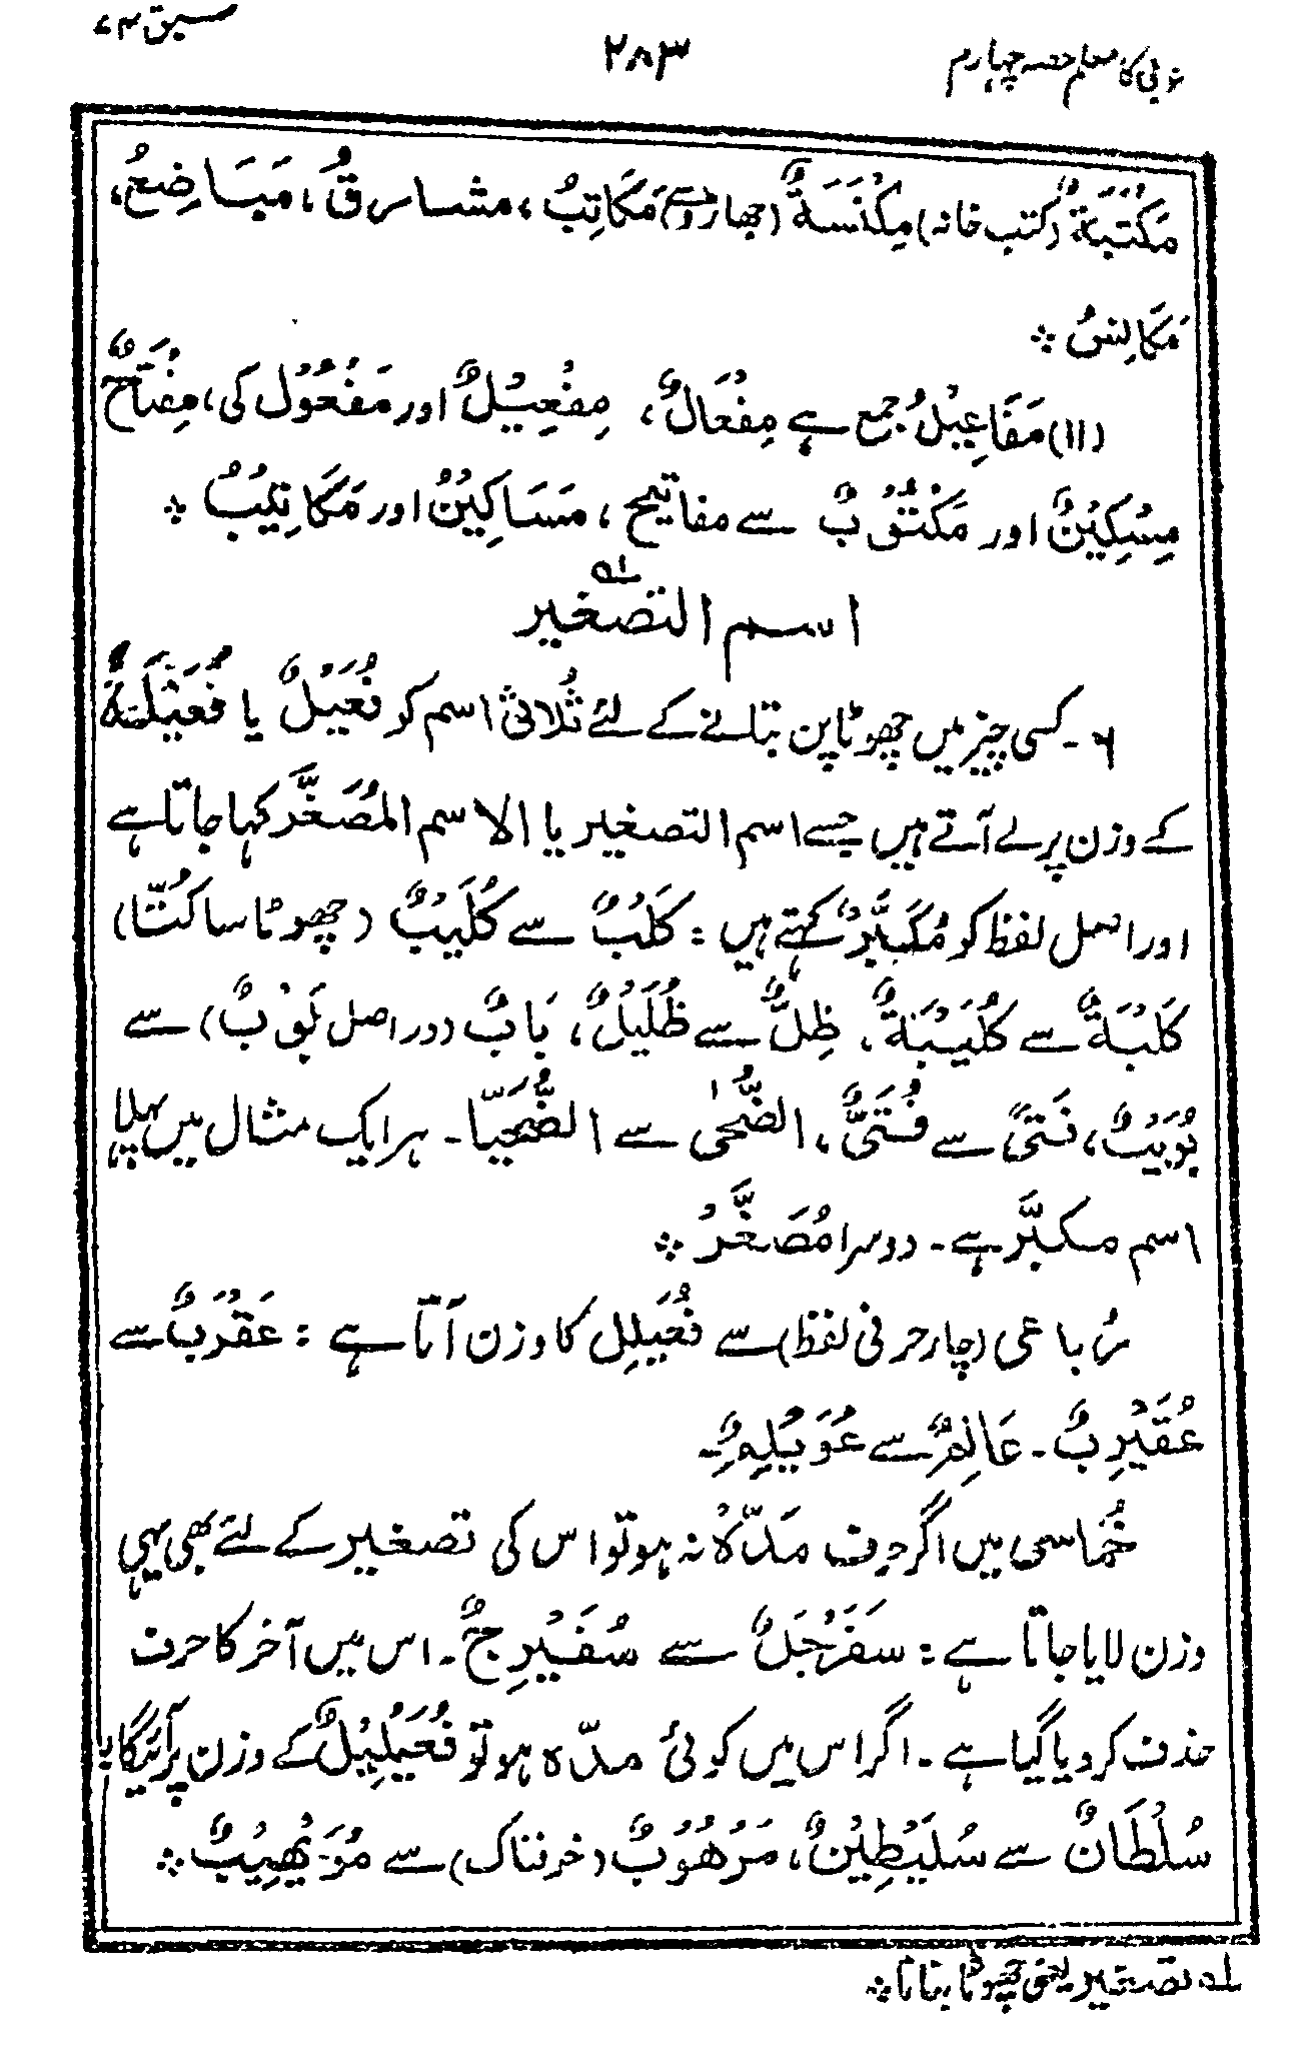 عربی کا معلم حصہ چہارم
۲۸۳
سبق ۷۴
مَكْتَبَةٌ (کتب خانہ) مِكْنَسَةٌ (جھاڑو) سے مَكَاتِبُ، مشارقُ، مَبَاضِعُ،
مَكَانِسُ
(۱۱) مَفَاعِيْلُ جمع ہے مِفْعَالٌ، مِفْعِيْلٌ اور مَفْعُوْل کی، مِفْتَاحٌ
مِسْكِيْنٌ اور مَكْتُوْبٌ سے مفاتیح، مَسَاكِيْنُ اور مَكَاتِيْبُ
اسم التصغیر ؎۱
۶۔ کسی چیز میں چھوٹا پن بتلانے کے لئے ثُلاثی اسم کو فُعَيْلٌ یا فُعَيْلَةٌ
کے وزن پر لے آتے ہیں جسے اسم التصغیر یا الاسم المُصَغَّر کہا جاتا ہے
اور اصل لفظ کو مُكَبَّرٌ کہتے ہیں : كَلْبٌ سے كُلَيْبٌ (چھوٹا سا کُتّا)
كَلْبَةٌ سے كُلَيْبَةٌ، ظِلٌّ سے ظُلَيْلٌ، بَابٌ (در اصل بَوْبٌ) سے
بُوَيْبٌ، فَتًى سے فُتَيٌّ، الضُّحٰى سے الضُّحَيَّا۔ ہر ایک مثال میں پہلا
اسم مکبَّر ہے۔ دوسرا مُصَغَّرُ
رُباعی (چار حرفی لفظ) سے فُعَيْلِل کا وزن آتا ہے : عَقْرَبٌ سے
عُقَيْرِبٌ۔ عَالِمٌ سے عُوَيْلِمٌ۔
خُماسی میں اگر حرف مَدّہ نہ ہو تو اس کی تصغیر کے لئے بھی یہی
وزن لایا جاتا ہے : سَفَرْجَلٌ سے سُفَيْرِجٌ۔ اس میں آخر کا حرف
حذف کر دیا گیا ہے۔ اگر اس میں کوئی مدّہ ہو تو فُعَيْلِيْلٌ کے وزن پر آئیگا :
سُلْطَانٌ سے سُلَيْطِيْنٌ، مَرْهُوْبٌ (خوفناک) سے مُرَيْهِيْبٌ
؎۱ تصغیر یعنی چھوٹا بنانا